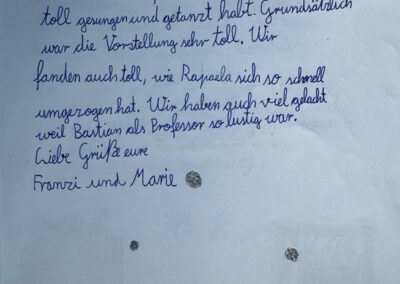 toll gesungen und getanzt habt. Grundsätzlich
war die Vorstellung sehr toll. Wir
fanden auch toll, wie Rapaela sich so schnell
umgezogen hat. Wir haben auch viel gelacht
weil Bastian als Professor so lustig war.
Liebe Grüße eure
Franzi und Marie